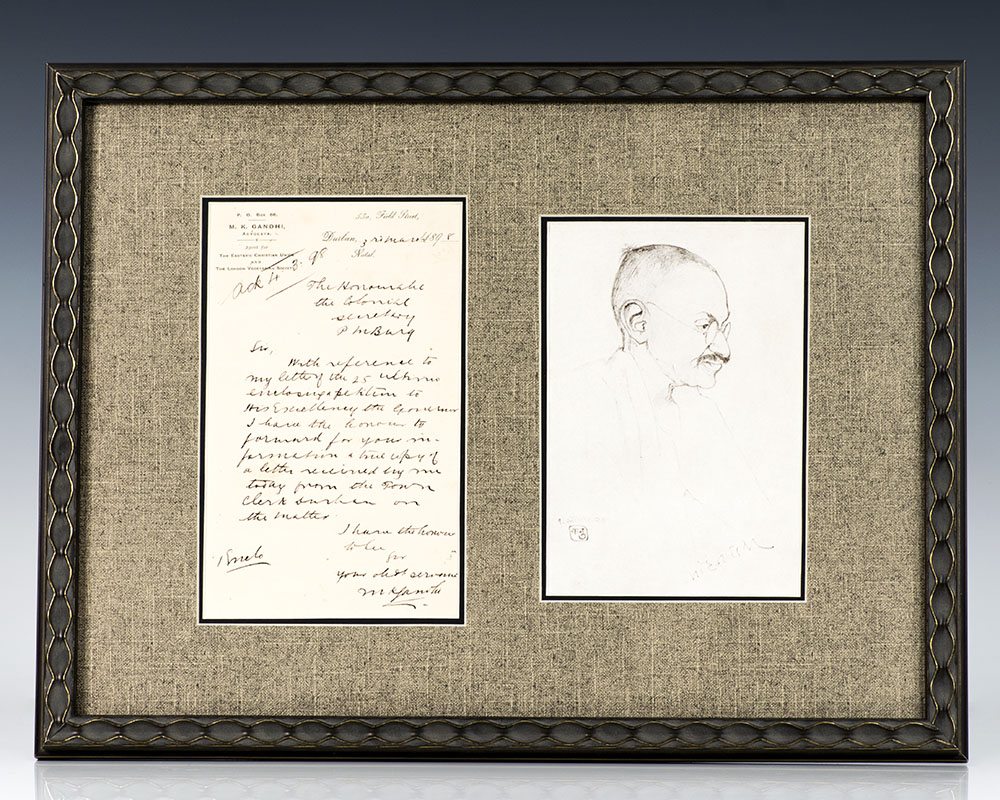 P. O. Box 66.
M. K. GANDHI,
ADVOCATE.
Agent for
THE ESOTERIC CHRISTIAN UNION
AND
THE LONDON VEGETARIAN SOCIETY
53a, Field Street,
Durban, 3rd March 1898
Natal.
ack 4 3. 98
The Honourable
the Colonial
Secretary
PMBurg
Sir,
With reference to
my letter of the 25 ultimo
enclosing a petition to
His Excellency the Governor
I have the honour to
forward for your in-
formation a true copy of
a letter received by me
today from the Town
Clerk Durban on
the matter.
I have the honour
to be
Sir
your obdt servant
M K Gandhi